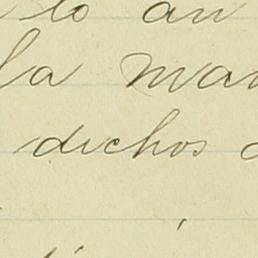 lo an
la man
dichos